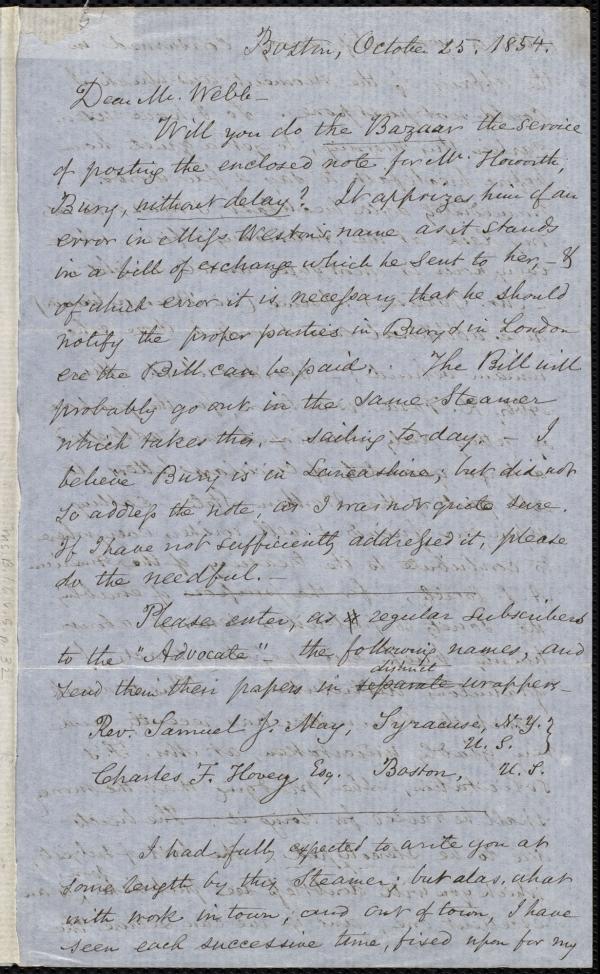 Boston, October 25. 1854.
Dear Mr. Webb—
Will you do the Bazaar the service
of posting the enclosed note for Mr. Howorth,
Bury, without delay? It apprizes him of an
error in Miss Weston's name as it stands
in a bill of exchange which he sent to her, — &
of which error it is necessary that he should
notify the proper parties in Bury & in London
ere the Bill can be paid. The Bill will
probably go out in the same Steamer
which takes this, — sailing to-day. — I
believe Bury is in Lancashire, but did not
so address the note, as I was not quite sure.
If I have not sufficiently addressed it, please
do the needful. —
Please enter, as regular subscribers
to the "Advocate" — the following names, and
send them their papers in separate distinct wrappers—
Rev. Samuel J. May, Syracuse, N.Y. }
U. S.
Charles F. Hovey Esq. Boston, U. S.
I had fully expected to write you at
some length by this Steamer; but alas, what
with work in town, and out of town, I have
seen each successive time, fixed upon for my